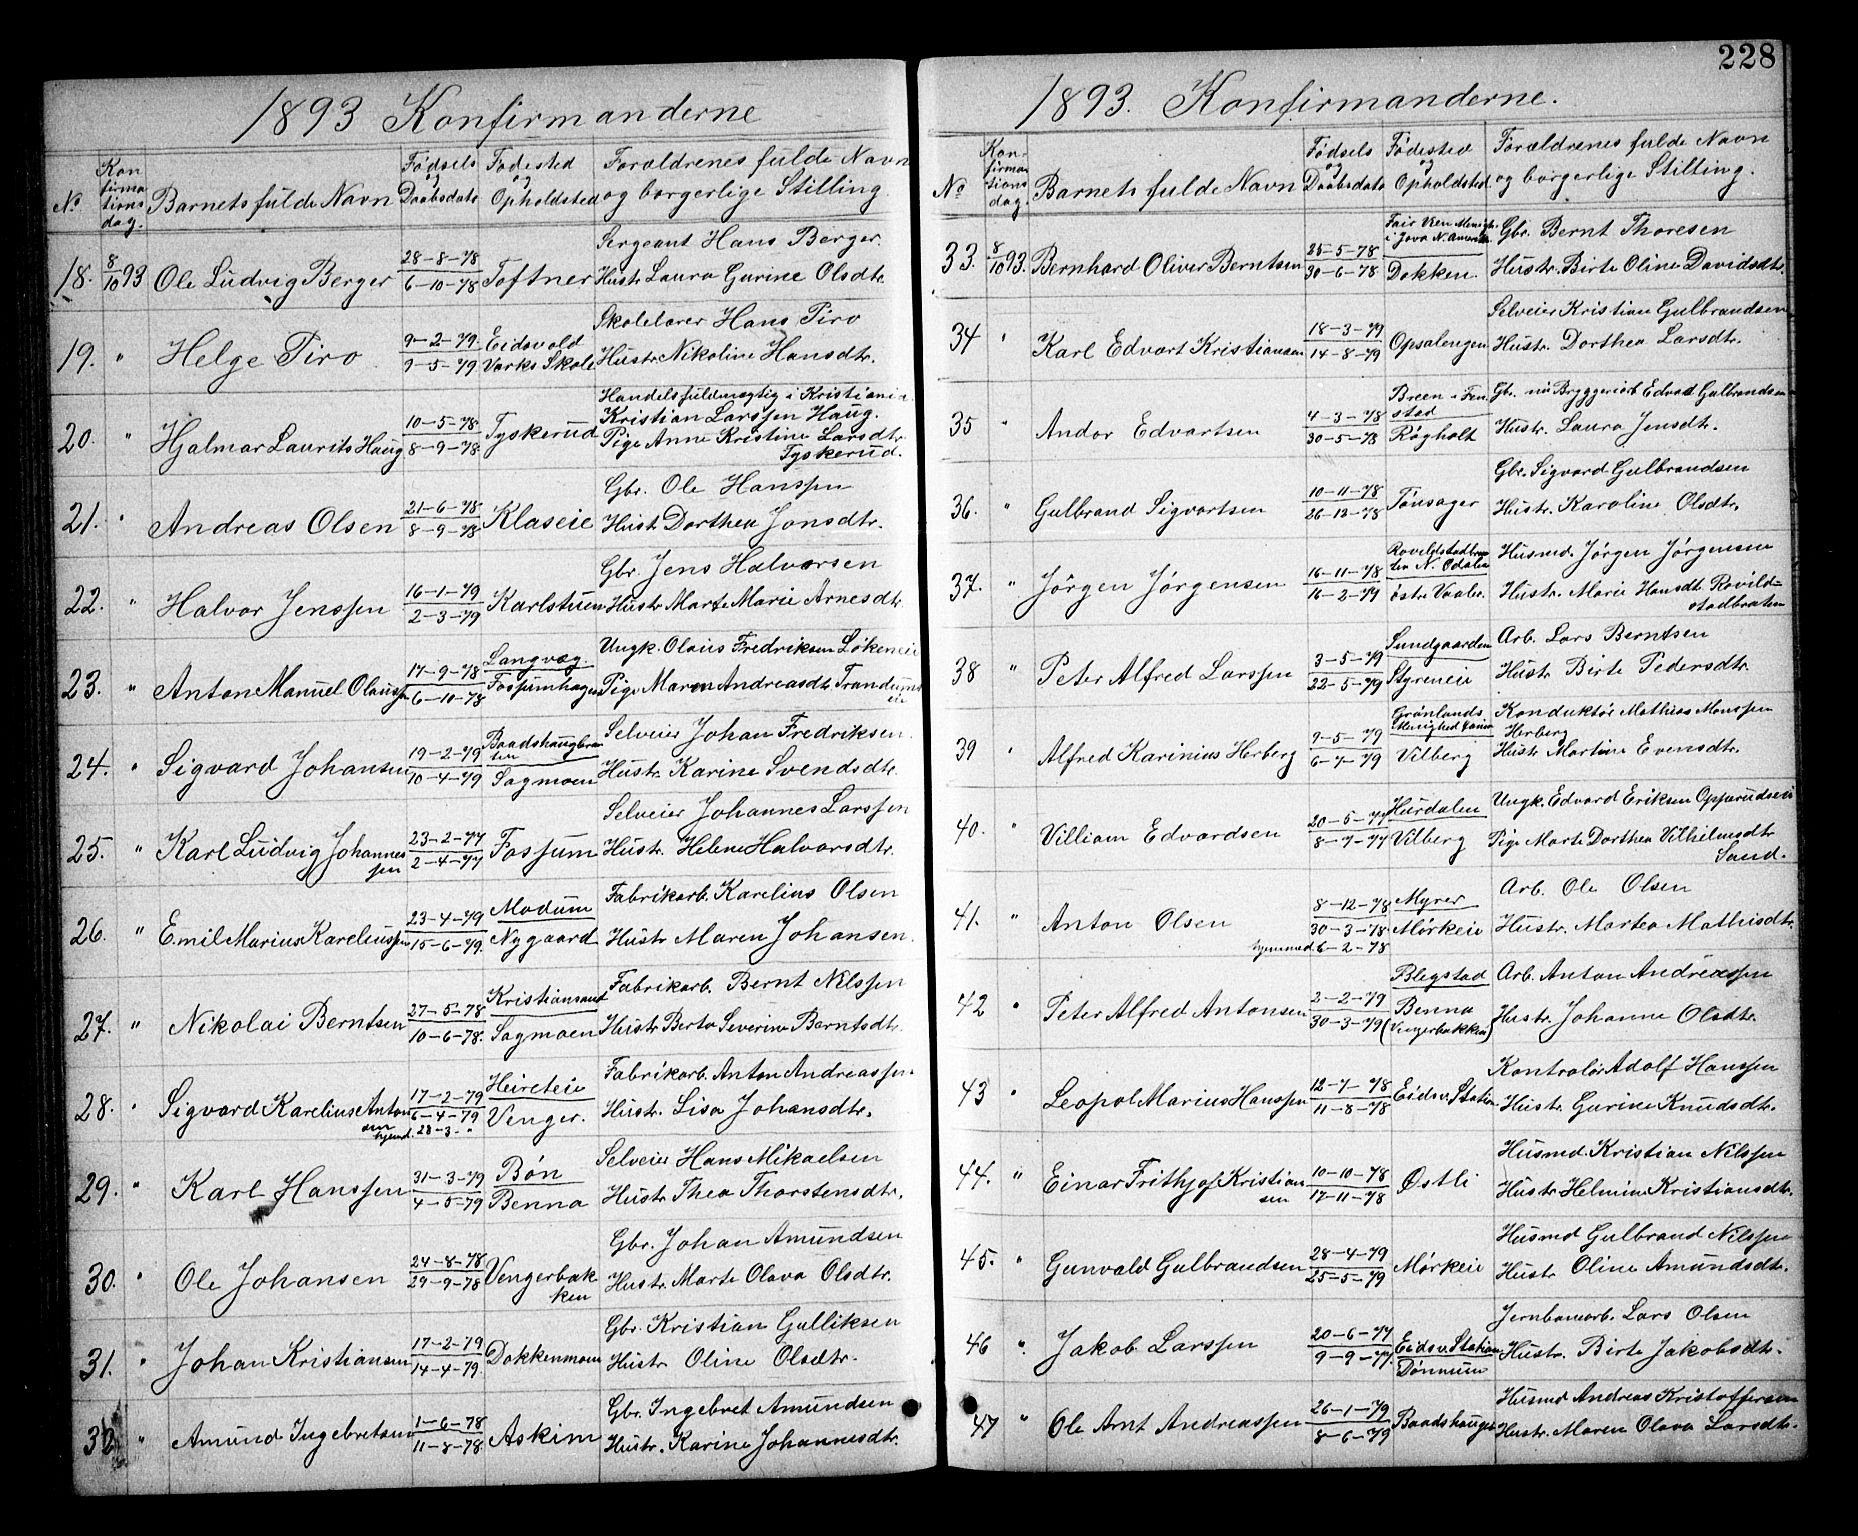 228
1893 Konfirmanderne
No
Kon
firma
tions
dag.
Barnets fulde Navn
Fødsels
og
Daabsdato
Fødested
og
Opholdsted
Forældrenes fulde Navn
og borgerlige Stilling.
18. 8/10 93 Ole Ludvig Berger
28-8-78
6-10-78
Toftner
Sergeant Hans Berger.
Hustr. Laura Gurine Olsdtr.
19. " Helge Tiro
9-2-79.
9-5-79
Eidsvold
Værks Skole
Skolelærer Hans Tiro
Hustr. Nikoline Hansdtr.
20. " Hjalmar Laurits Haug
10-5-78
8-9-78
Tyskerud
Handelsfuldmægtig i Kristiania
Kristian Larssen Haug.
Pige Anne Kristine Larsdtr.
Tyskerud.
21. " Andreas Olsen
21-6-78
8-9-78
Klaseie
Gbr. Ole Hanssen
Hustr. Dorthea Jonsdtr.
22. " Halvor Jenssen
16-1-79
2-3-79
Karlstuen
Gbr. Jens Halvorsen
Hustr. Marte Marie Arnesdtr.
23. " Anton Manuel Olaussen
17-9-78
6-10-78
Langvæg.
Fossumhagen
Ungk. Olaus Fredriksen Løkeneie
Pige Maren Andreasdtr. Trandums
eie
24. " Sigvard Johansen
19-2-79
10-4-79
Baadshaugbraa
ten
Sagmoen
Selveier Johan Fredriksen.
Hustr. Karine Svendsdtr.
25. " Karl Ludvig Johannes
sen
23-2-77
2-4-77
Fossum
Selveier Johannes Larssen
Hustr. Helene Halvorsdtr.
26. " Emil Marius Kareliussen
23-4-79
15-6-79.
Modum
Nygaard
Fabrikarb. Karelius Olsen
Hustr. Maren Johansen.
27. " Nikolai Berntsen
27-5-78
10-6-78.
Kristiansand
Sagmoen
Fabrikarb. Bernt Nilssen
Hustr. Berta Severine Berntsdtr.
28. " Sigvard Karelius Anton
sen
hjemd.
17-2-79
6-4-79
28-3-"
Heireteie
Venger.
Fabrikarb. Anton Andreassen.
Hustr. Lisa Johansdtr.
29. " Karl Hanssen
31-3-79
4-5-79
Bøn
Benna
Selveier Hans Mikaelsen
Hustr. Thea Thorstensdtr.
30. " Ole Johansen
24-8-78
29-9-78
Vengerbak
ken
Gbr. Johan Amundsen
Hustr. Marte Olava Olsdtr.
31. " Johan Kristiansen
17-2-79
14-4-79.
Dokkenmoen
Gbr. Kristian Gulliksen
Hustr. Oline Olsdtr.
32. " Amund Ingebretsen
1-6-78
11-8-78
Askim
Gbr. Ingebret Amundsen
Hustr. Karine Johannesdtr.
1893. Konfirmanderne.
No
Kon-
firma-
tions
dag.
Barnets fulde Navn
Fødsels
og
Daabsdato
Fødested
og
Opholdsted.
Forældrenes fulde Navn
og borgerlige Stilling.
33. 8/10 93. Bernhard Oliver Berntsen
25-5-78
30-6-78
Fair View Menigh.
i Jova N. Amerika
Dokken.
Gbr. Bernt Thoresen
Hustr. Birte Oline Davidsdtr.
34 " Karl Edvart Kristiansen
18-3-79
14-8-79
Opsalengen
Selveier Kristian Gulbrandsen
Hustr. Dorthea Larsdtr.
35 " Andor Edvartsen
4-3-78
30-5-78
Breen i Fen
stad
Røgholt
Gbr. nu Bryggeriarb Edvart Gulbrandsen
Hustr. Laura Jensdtr.
36. " Gulbrand Sigvartsen
10-11-78
26-12-78
Tønsager
Gbr. Sigvard Gulbrandsen
Hustr. Karoline Olsdtr.
37. " Jørgen Jørgensen
16-11-78
16-2-79
ten N. Odalen
østr. Vaaler.
Husmd. Jørgen Jørgensen
Hustr. Marie Hansdt. Rovild-
stadbraten
38 " Peter Alfred Larssen
3-5-79
22-5-79
Sundgaarden
Styreneie
Arb. Lars Berntsen
Hustr. Birte Pedersdtr.
39 " Alfred Karinius Herberg
7-5-79
6-7-79
Grønlands
Menighed
Vilberg
Konduktør Mathias Monssen
Herberg
Hustr. Martine Evensdtr.
40. " Villiam Edvardsen
20-5-77
8-7-77
Hurdalen
Vilberg
Ungk. Edvard Eriksen Opperudseie
Pige Marte Dorthea Vilhelmsdtr
Sand.
41. " Anton Olsen
8-12-78
30-3-78
hjemmed. 6-2-78
Myrer
Mørkeie
Arb. Ole Olsen
Hustr. Martea Mathisdtr.
42 " Peter Alfred Antonsen
2-2-79
30-3-79
Blegstad
Benna
(Vengerbakken)
Arb. Anton Andreassen
Hustr. Johanne Olsdtr.
43 " Leopol Marius Hanssen
12-7-78
11-8-78
Eidsv. Station
Kontrolør Adolf Hanssen
Hustr. Gurine Knudsdtr.
44. " Einar Frithjof Kristian
sen
10-10-78
17-11-78
Østli
Husmd. Kristian Nilssen
Hustr. Helmine Kristiansdtr.
45. " Gunvald Gulbrandsen
28-4-79
25-5-79
Mørkeie
Husmd Gulbrand Nilssen
Hustr. Oline Amundsdtr.
46 " Jakob Larssen
20-6-77
9-9-77.
Eidsv. Station
Dønnum
Jernbanearb. Lars Olsen
Hustr. Birte Jakobsdtr.
47 " Ole Arnt Andreassen
26-1-79
8-6-79
Baadshaugen
Husmd Andreas Kristoffersen
Hustr. Maren Olava Larsdtr.